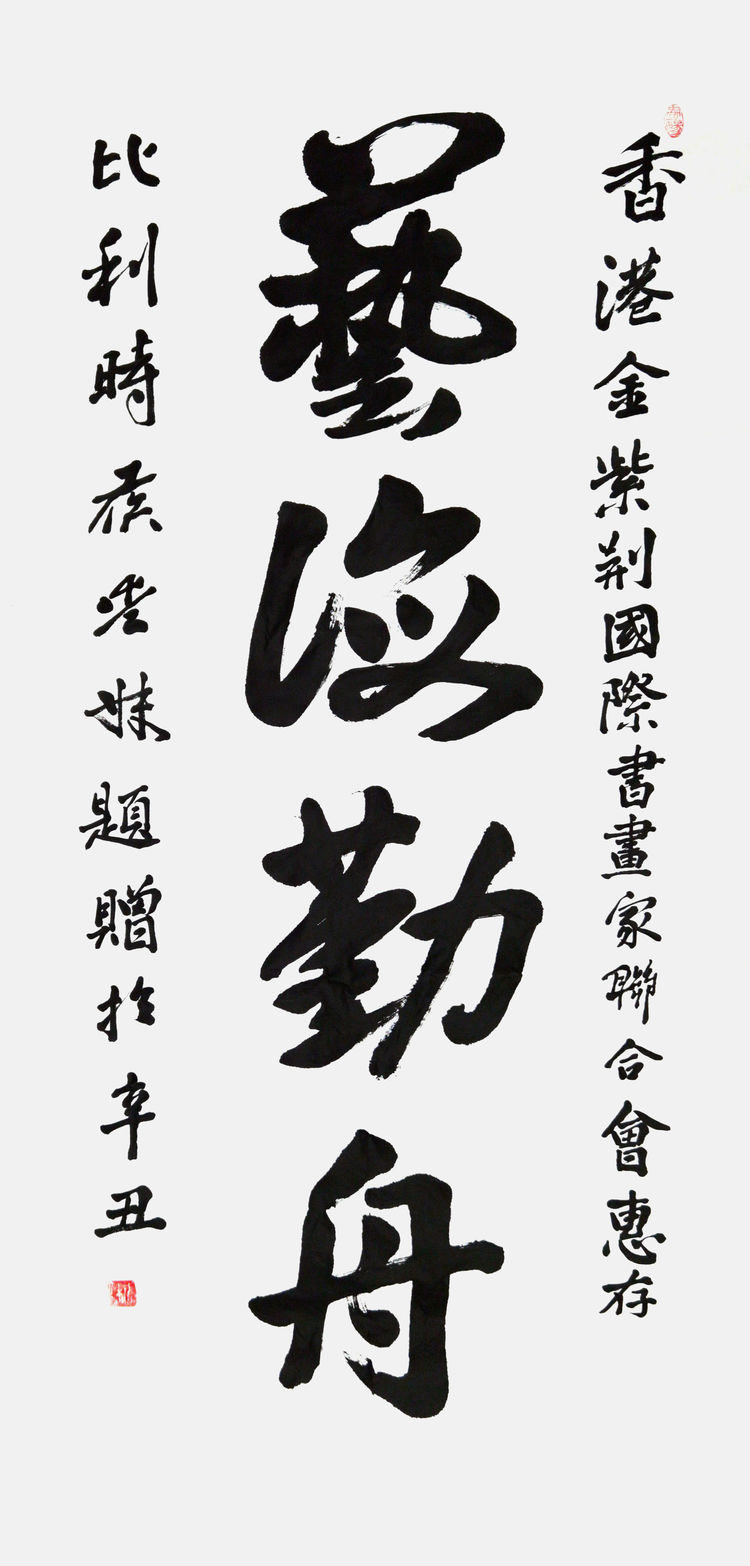 香港金紫荆國際書畫家聯合會惠存
藝海勤舟
比利時侯雲妹題贈於辛丑